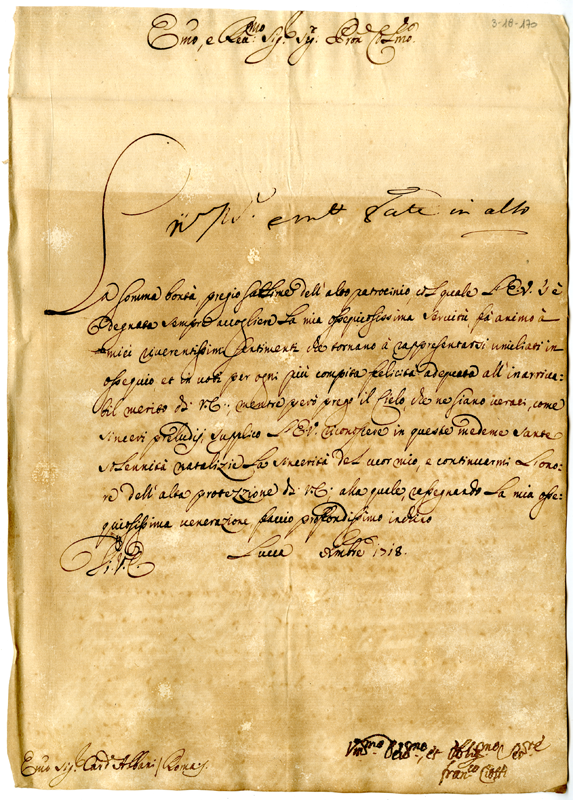 3-18-170
Emo, e Rea.mo Sig.r Sig.r Pron. Col.mo
in alto
La somma bontà, pregio sublime dell'alto patrocinio col quale L'E.V. s'è
degnata sempre accogliere la mia ossequiosissima servitù fà animo à
miei riverentissimi sentimenti che tornano à rappresentarsi umiliati in
ossequio et in voti per ogni più compita felicità adeguata all'inarriva-
bil merito di V.E., mentre però prego il Cielo, che ne siano veraci, come
sinceri preludij, supplico L'E.V. riconoscere in queste medeme Sante
Solennità natalizie la sincerità del cuor mio, e continuarmi l'ono-
re dell'alta protezzione di V.E. alla quale rassegnando la mia osse-
quiosissima venerazione faccio profondissimo inchino
Di V.E.
Lucca Xmbre 1718.
Emo Sig.r Card. Albani / Roma
Um.mo Dev.mo, et Oblig.mo Ser.re
Fran.co Ciofti